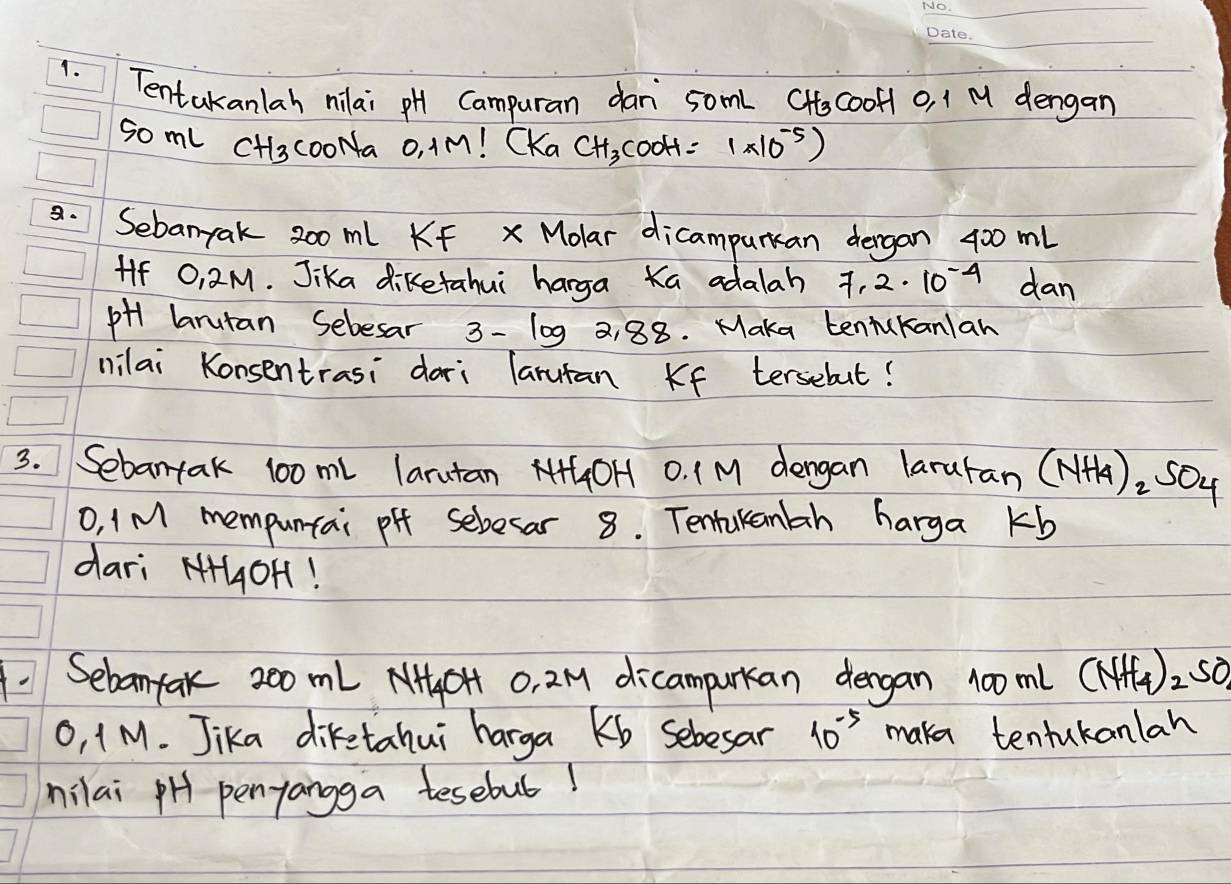 No.
Date.
1. Tentukanlah nilai pH Campuran dari 50mL CH3COOH 0,1 M dengan
50 mL CH3COONa 0,1M! (Ka CH3COOH = 1x10⁻⁵)
2. Sebanyak 200 mL KF x Molar dicampurkan dengan 400 mL
HF 0,2M. Jika diketahui harga Ka adalah 7,2·10⁻⁴ dan
pH larutan Sebesar 3- log 2,88. Maka tentukanlah
nilai Konsentrasi dari larutan KF tersebut!
3. Sebanyak 100 mL larutan NH4OH 0.1 M dengan larutan (NH4)2 SO4
0,1 M mempunyai pH sebesar 8. Tentukanlah harga Kb
dari NH4OH!
4. Sebanyak 200 mL NH4OH 0,2M dicampurkan dengan 100 mL (NH4)2 SO
0,1 M. Jika diketahui harga Kb Sebesar 10⁻⁵ maka tentukanlah
nilai pH penyangga tesebut!